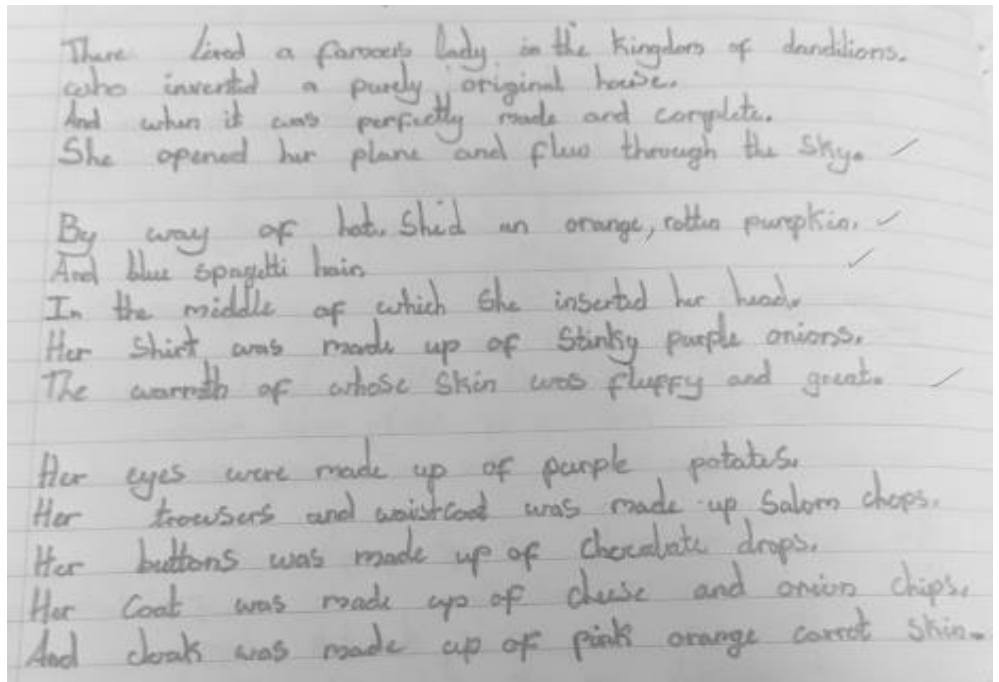 There lived a famous lady in the kingdom of danditions.
who invented a purely original house.
And when it was perfectly made and complete.
She opened her plane and flew through the sky.
By way of hat. She'd an orange, rotten pumpkin.
And blue spagetti hair.
In the middle of which she inserted her head.
Her shirt was made up of stinky purple onions.
The warmth of whose skin was fluffy and great.
Her eyes were made up of purple potatos.
Her trowsers and waistcoat was made up Salom chops.
Her buttons was made up of chocalate drops.
Her coat was made up of cheese and onion chips.
And cloak was made up of pink orange carrot skin.